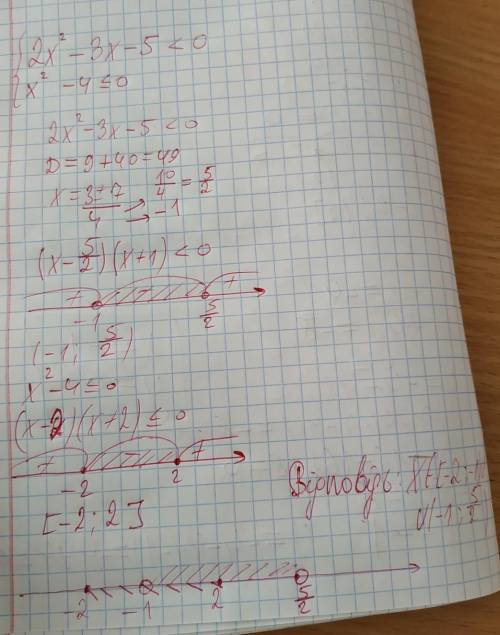 { 2x² - 3x - 5 < 0
{ x² - 4 ≤ 0
2x² - 3x - 5 < 0
D = 9 + 40 = 49
x = (3 ± 7)/4 → 10/4 = 5/2
→ -1
(x - 5/2)(x + 1) < 0
+ - +
-1 5/2
(-1; 5/2)
x² - 4 ≤ 0
(x - 2)(x + 2) ≤ 0
+ - +
-2 2
[-2; 2]
Відповідь: X∈[-2; -1)
∪(-1; 5/2
-2 -1 2 5/2